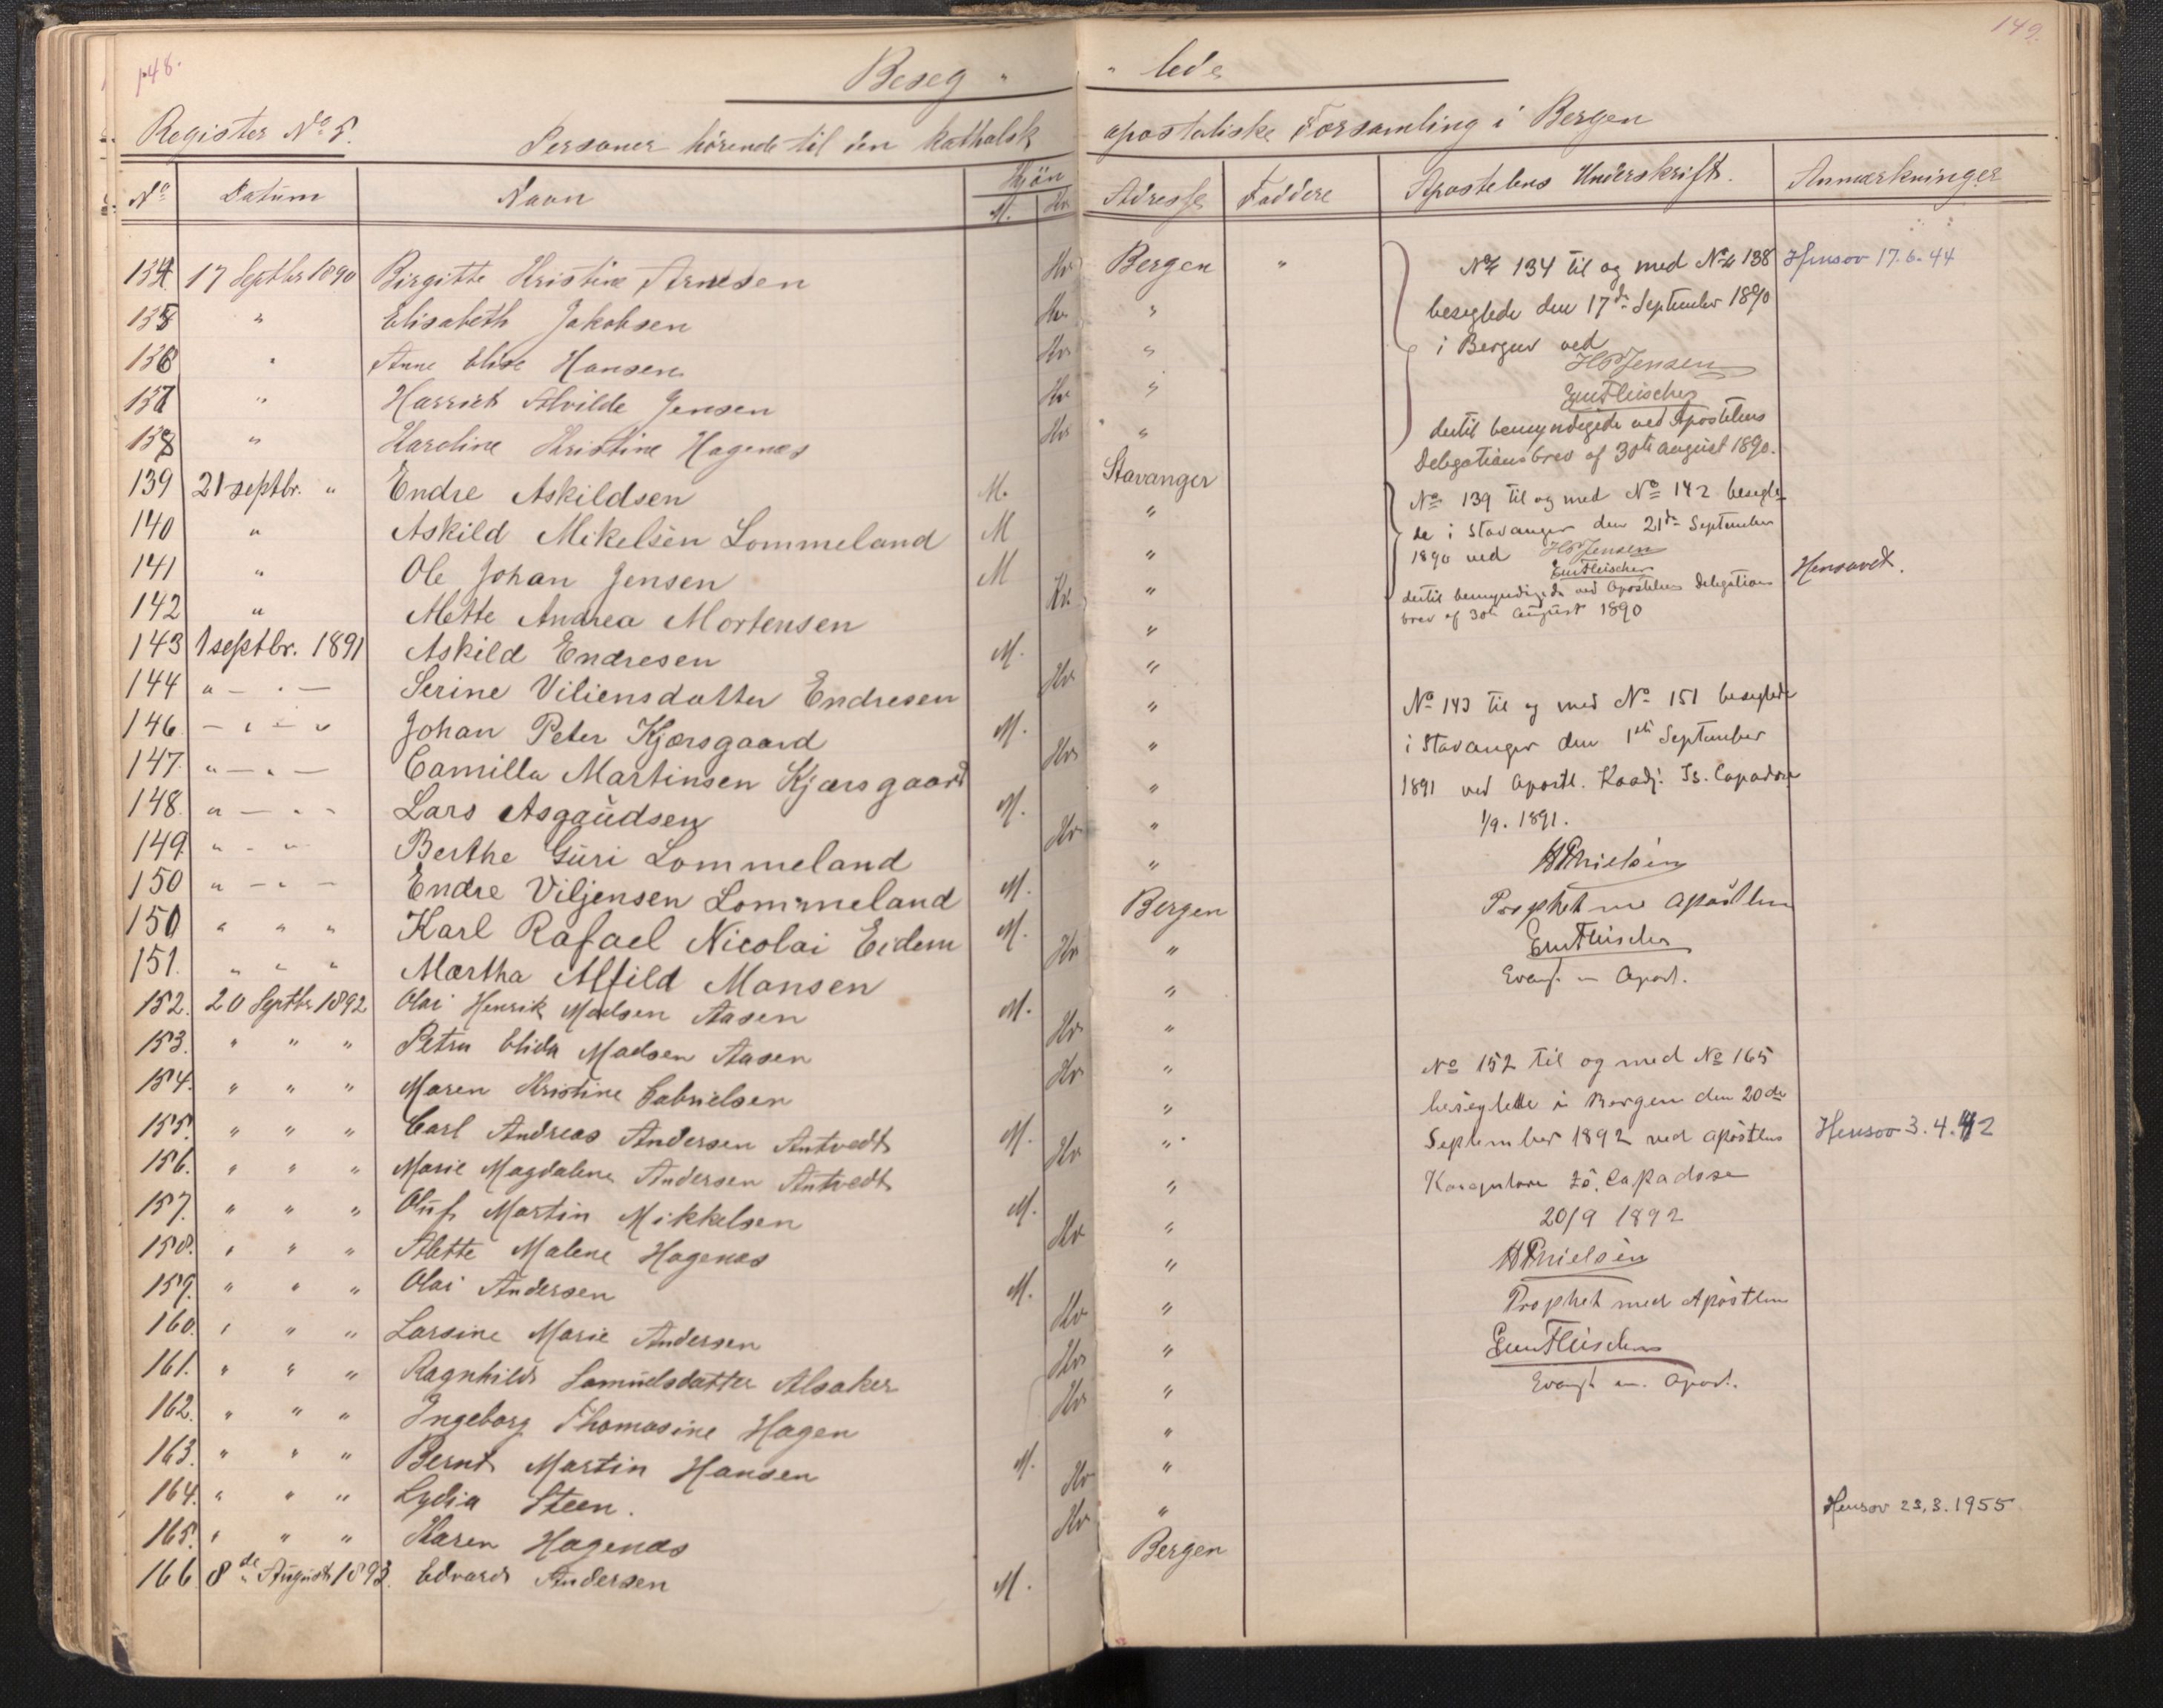 148.
149.
Beseg " " lede
Register No. 5.
Personer hörende til den katholsk apostoliske Forsamling i Bergen
No Datum Navn Kjön M. Kv Adresse Faddere Apostelens Underskrift. Anmærkninger
134 17 Septbr 1890 Birgitte Kristine Arnesen Kv Bergen "
135 " Elisabeth Jakobsen Kv "
136 " Anne Elise Hansen Kv "
137 " Harriet Alvilde Jensen Kv "
138 " Karoline Kristine Hagenæs Kv "
139 21 septbr. " Endre Askildsen M. Stavanger
140 " Askild Mikelsen Lommeland M "
141 " Ole Johan Jensen M "
142 " Mette Andrea Mortensen Kv "
143 1 septbr. 1891 Askild Endresen M. "
144 " — " — Serine Viliensdatter Endresen Kv "
146 — " — " Johan Peter Kjærsgaard M. "
147 " — " — Camilla Martinsen Kjærsgaard Kv "
148. " — " - Lars Asgaüdsen M. "
149. " - " Berthe Güri Lommeland Kv "
150 " — " — Endre Viljensen Lommeland M. "
150 " " " Karl Rafael Nicolai Eidem M. Bergen
151. " " " Martha Alfild Monsen Kv "
152. 20 Septbr 1892 Olai Henrik Madsen Aasen M. "
153. " " " Petra Elida Madsen Aasen Kv "
154. " " " Maren Kristine Gabrielsen Kv "
155. " " " Carl Andreas Andersen Antvedt M. "
156. " " " Marie Magdalene Andersen Antvedt Kv "
157. " " " Oluf Martin Mikkelsen M. "
158. " " " Alette Malene Hagenæs Kv "
159. " " " Olai Andersen M. "
160. " " " Larsine Marie Andersen Kv "
161. " " " Ragnhild Samüelsdatter Alsaker Kv "
162. " " " Ingeborg Thomasine Hagen Kv "
163. " " " Bernt Martin Hansen M. "
164. " " " Lydia Steen. Kv "
165. " " " Karen Hagenæs Kv "
166 8de August 1893. Edvard Andersen M. Bergen
No 134 til og med No 138
beseglede den 17de September 1890
i Bergen ved
HPJensen
EmFleischer
dertil bemyndigede ved Apostelens
Delegationsbrev af 30te august 1890.
No 139 til og med No 142 besegle-
de i Stavanger den 21de September
1890 ved HPJensen
EmFleischer
dertil bemyndigede ved Apostelens Delegations
brev af 30te august 1890
No 143 til og med No 151 beseglede
i Stavanger den 1ste September
1891 ved Apostl. Koadj. Is. Capadose
1/9. 1891.
HPNielsen
Prophet m Apostlen
EmFleischer
Evang. m Apost.
No 152 til og med No 165
beseglede i Bergen den 20de
September 1892 ved Apostlens
Is. Capadose
20/9 1892
HPNielsen
Prophet med Apostlen
EmFleischer
Evangt m. Apost.
Hensov 17.6.44
Hensovet.
Hensov 3.4.42
Hensov 23.3.1955